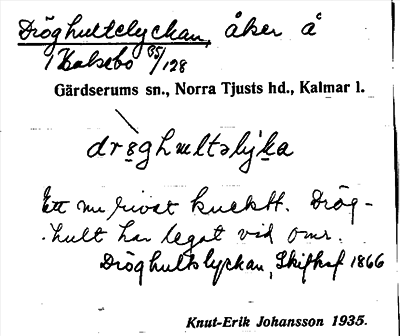 Dröghultelyckan, åker å
1 Kalsebo 35/128
Gärdserums sn., Norra Tjusts hd., Kalmar l.
Ett nu rivet kucktt. Drög-
hult har legat vid omr.
Dröghultslyckan, Skifthaf 1866
Knut-Erik Johansson 1935.